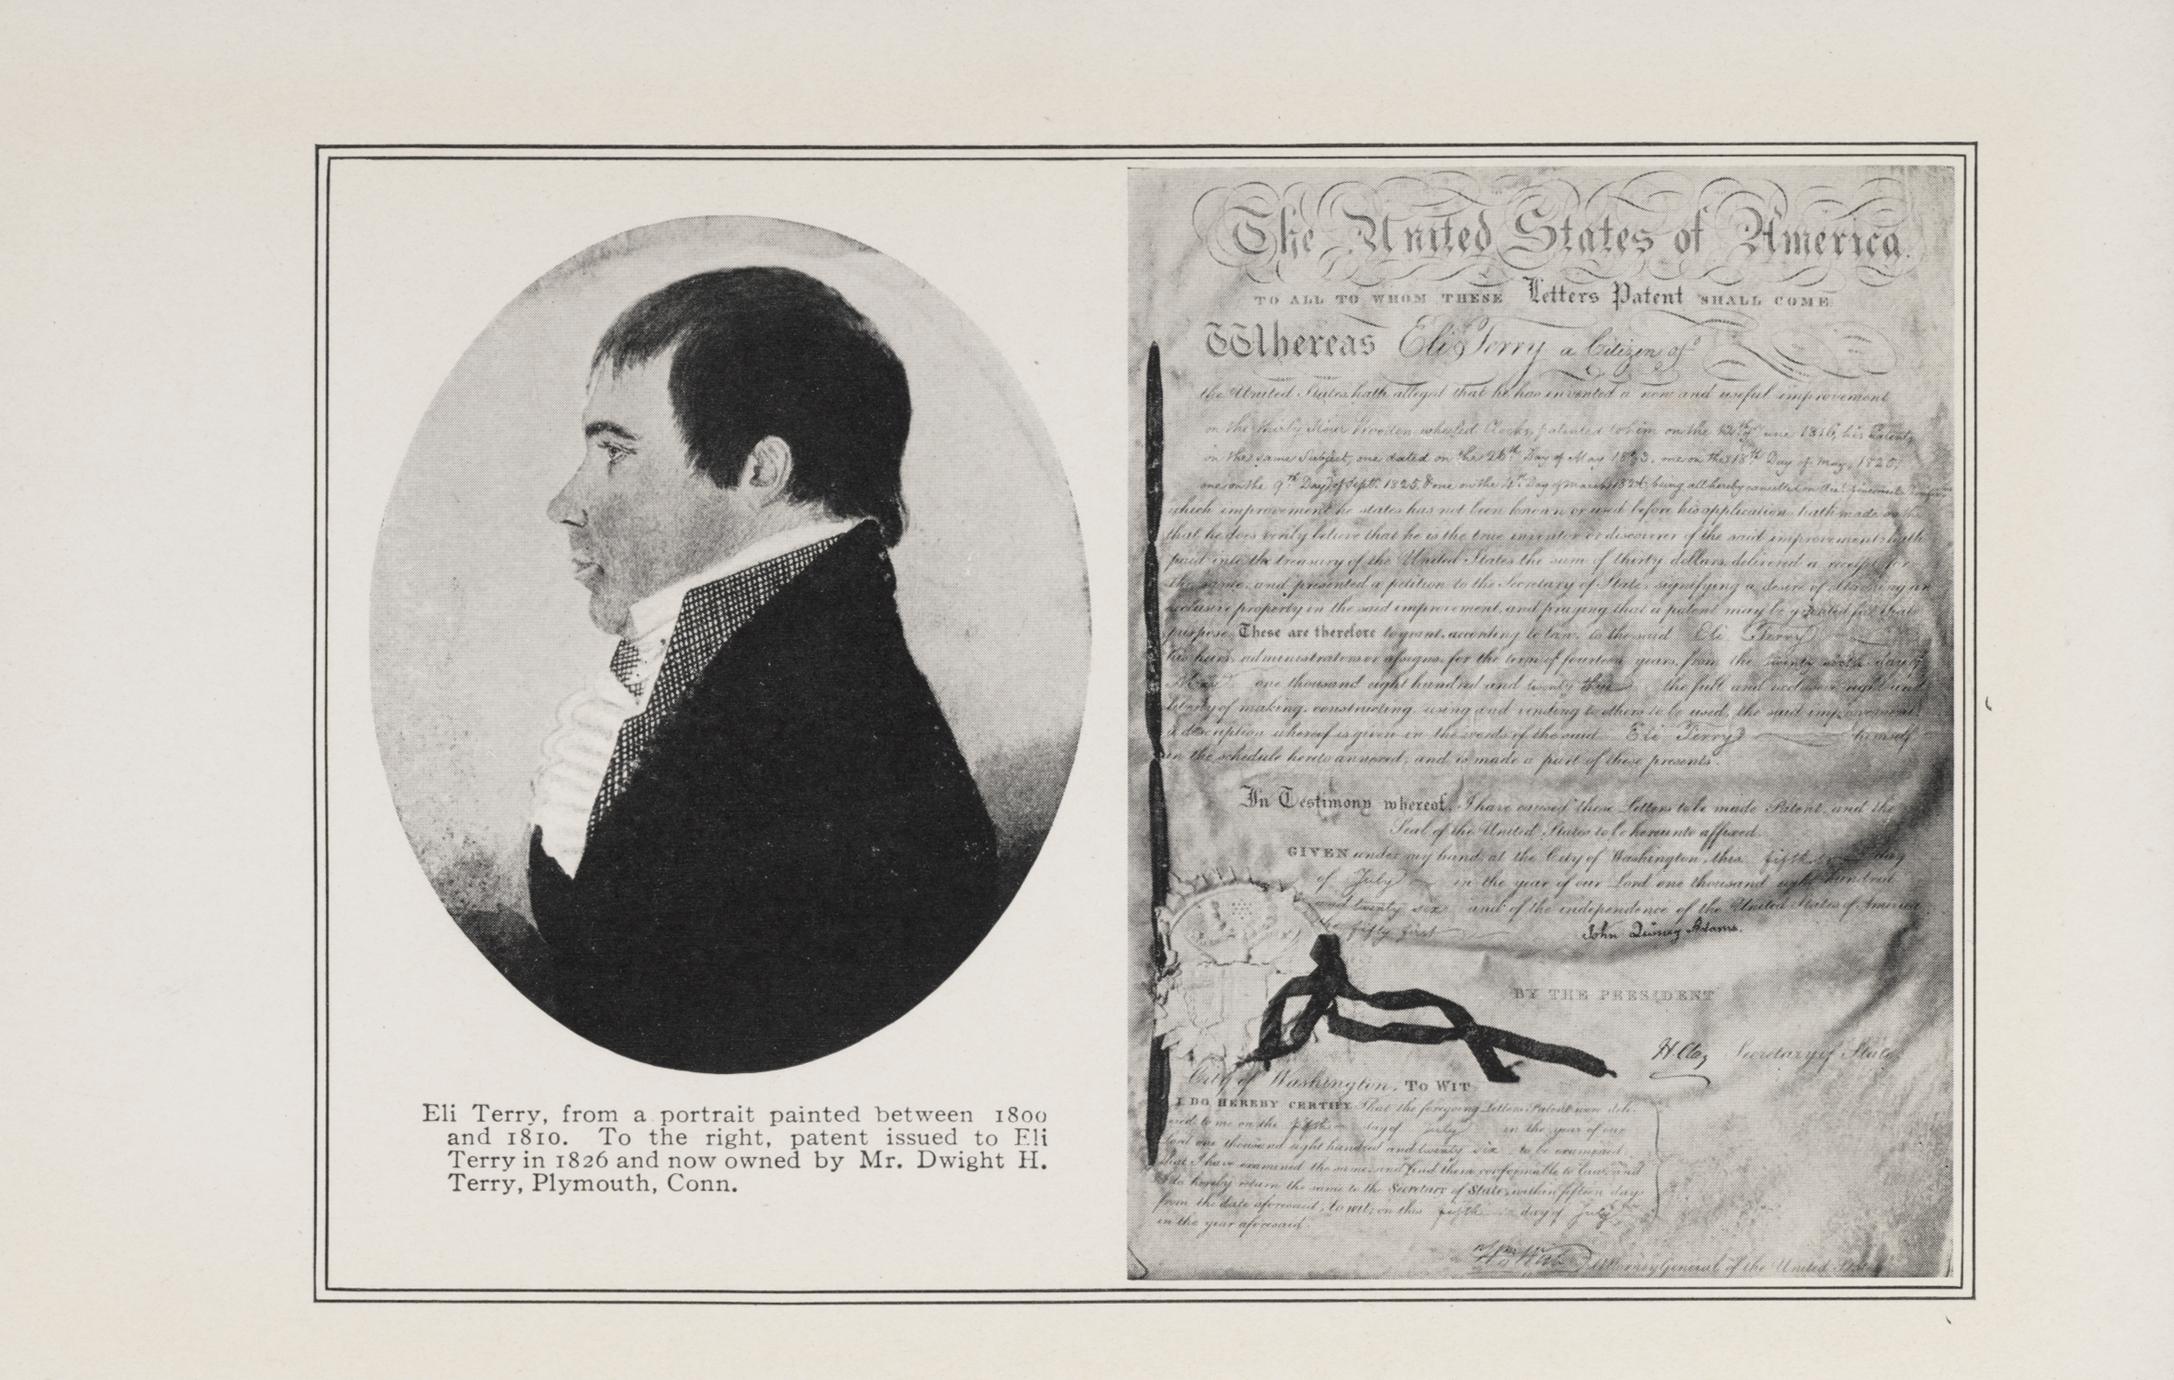 Eli Terry, from a portrait painted between 1800
and 1810. To the right, patent issued to Eli
Terry in 1826 and now owned by Mr. Dwight H.
Terry, Plymouth, Conn.
The United States of America.
TO ALL TO WHOM THESE Letters Patent SHALL COME
Whereas Eli Terry a Citizen of
the United States, hath alleged that he has invented a new and useful improvement
on the thirty hour Wooden wheeled Clocks, patented to him on the 12th June 1816, his Patents
on the same Subject, one dated on the 26th Day of May 1823. one on the 18th Day of May, 1825,
one on the 9th Day of Sept. 1825, & one on the 4th Day of March 1826, being all hereby cancelled on
which improvement he states has not been known or used before his application, hath made oath
that he does verily believe that he is the true inventor or discoverer of the said improvement, hath
paid into the treasury of the United States the sum of thirty dollars, delivered a receipt for
the same, and presented a petition to the Secretary of State, signifying a desire of obtaining an
exclusive property in the said improvement, and praying that a patent may be granted for that
purpose. These are therefore to grant, according to law, to the said Eli Terry
his heirs, administrators or assigns, for the term of fourteen years, from the twenty sixth day of
May one thousand eight hundred and twenty three the full and exclusive right and
liberty of making, constructing, using and vending to others to be used, the said improvement,
a description whereof is given in the words of the said Eli Terry himself
in the schedule hereto annexed, and is made a part of these presents.
In Testimony whereof, I have caused these Letters to be made Patent, and the
Seal of the United States to be hereunto affixed.
GIVEN under my hand, at the City of Washington, this fifth day
of July in the year of our Lord one thousand eight hundred
and twenty six and of the independence of the United States of America
the fifty first
John Quincy Adams.
BY THE PRESIDENT
H. Clay Secretary of State
City of Washington, TO WIT
I DO HEREBY CERTIFY That the foregoing Letters Patent were deli-
vered to me on the fifth day of July in the year of our
Lord one thousand eight hundred and twenty six to be examined,
that I have examined the same, and find them conformable to law, and
I do hereby return the same to the Secretary of State, within fifteen days
from the date aforesaid, to wit, on this fifth day of July
in the year aforesaid.
Wm Wirt Attorney General of the United States